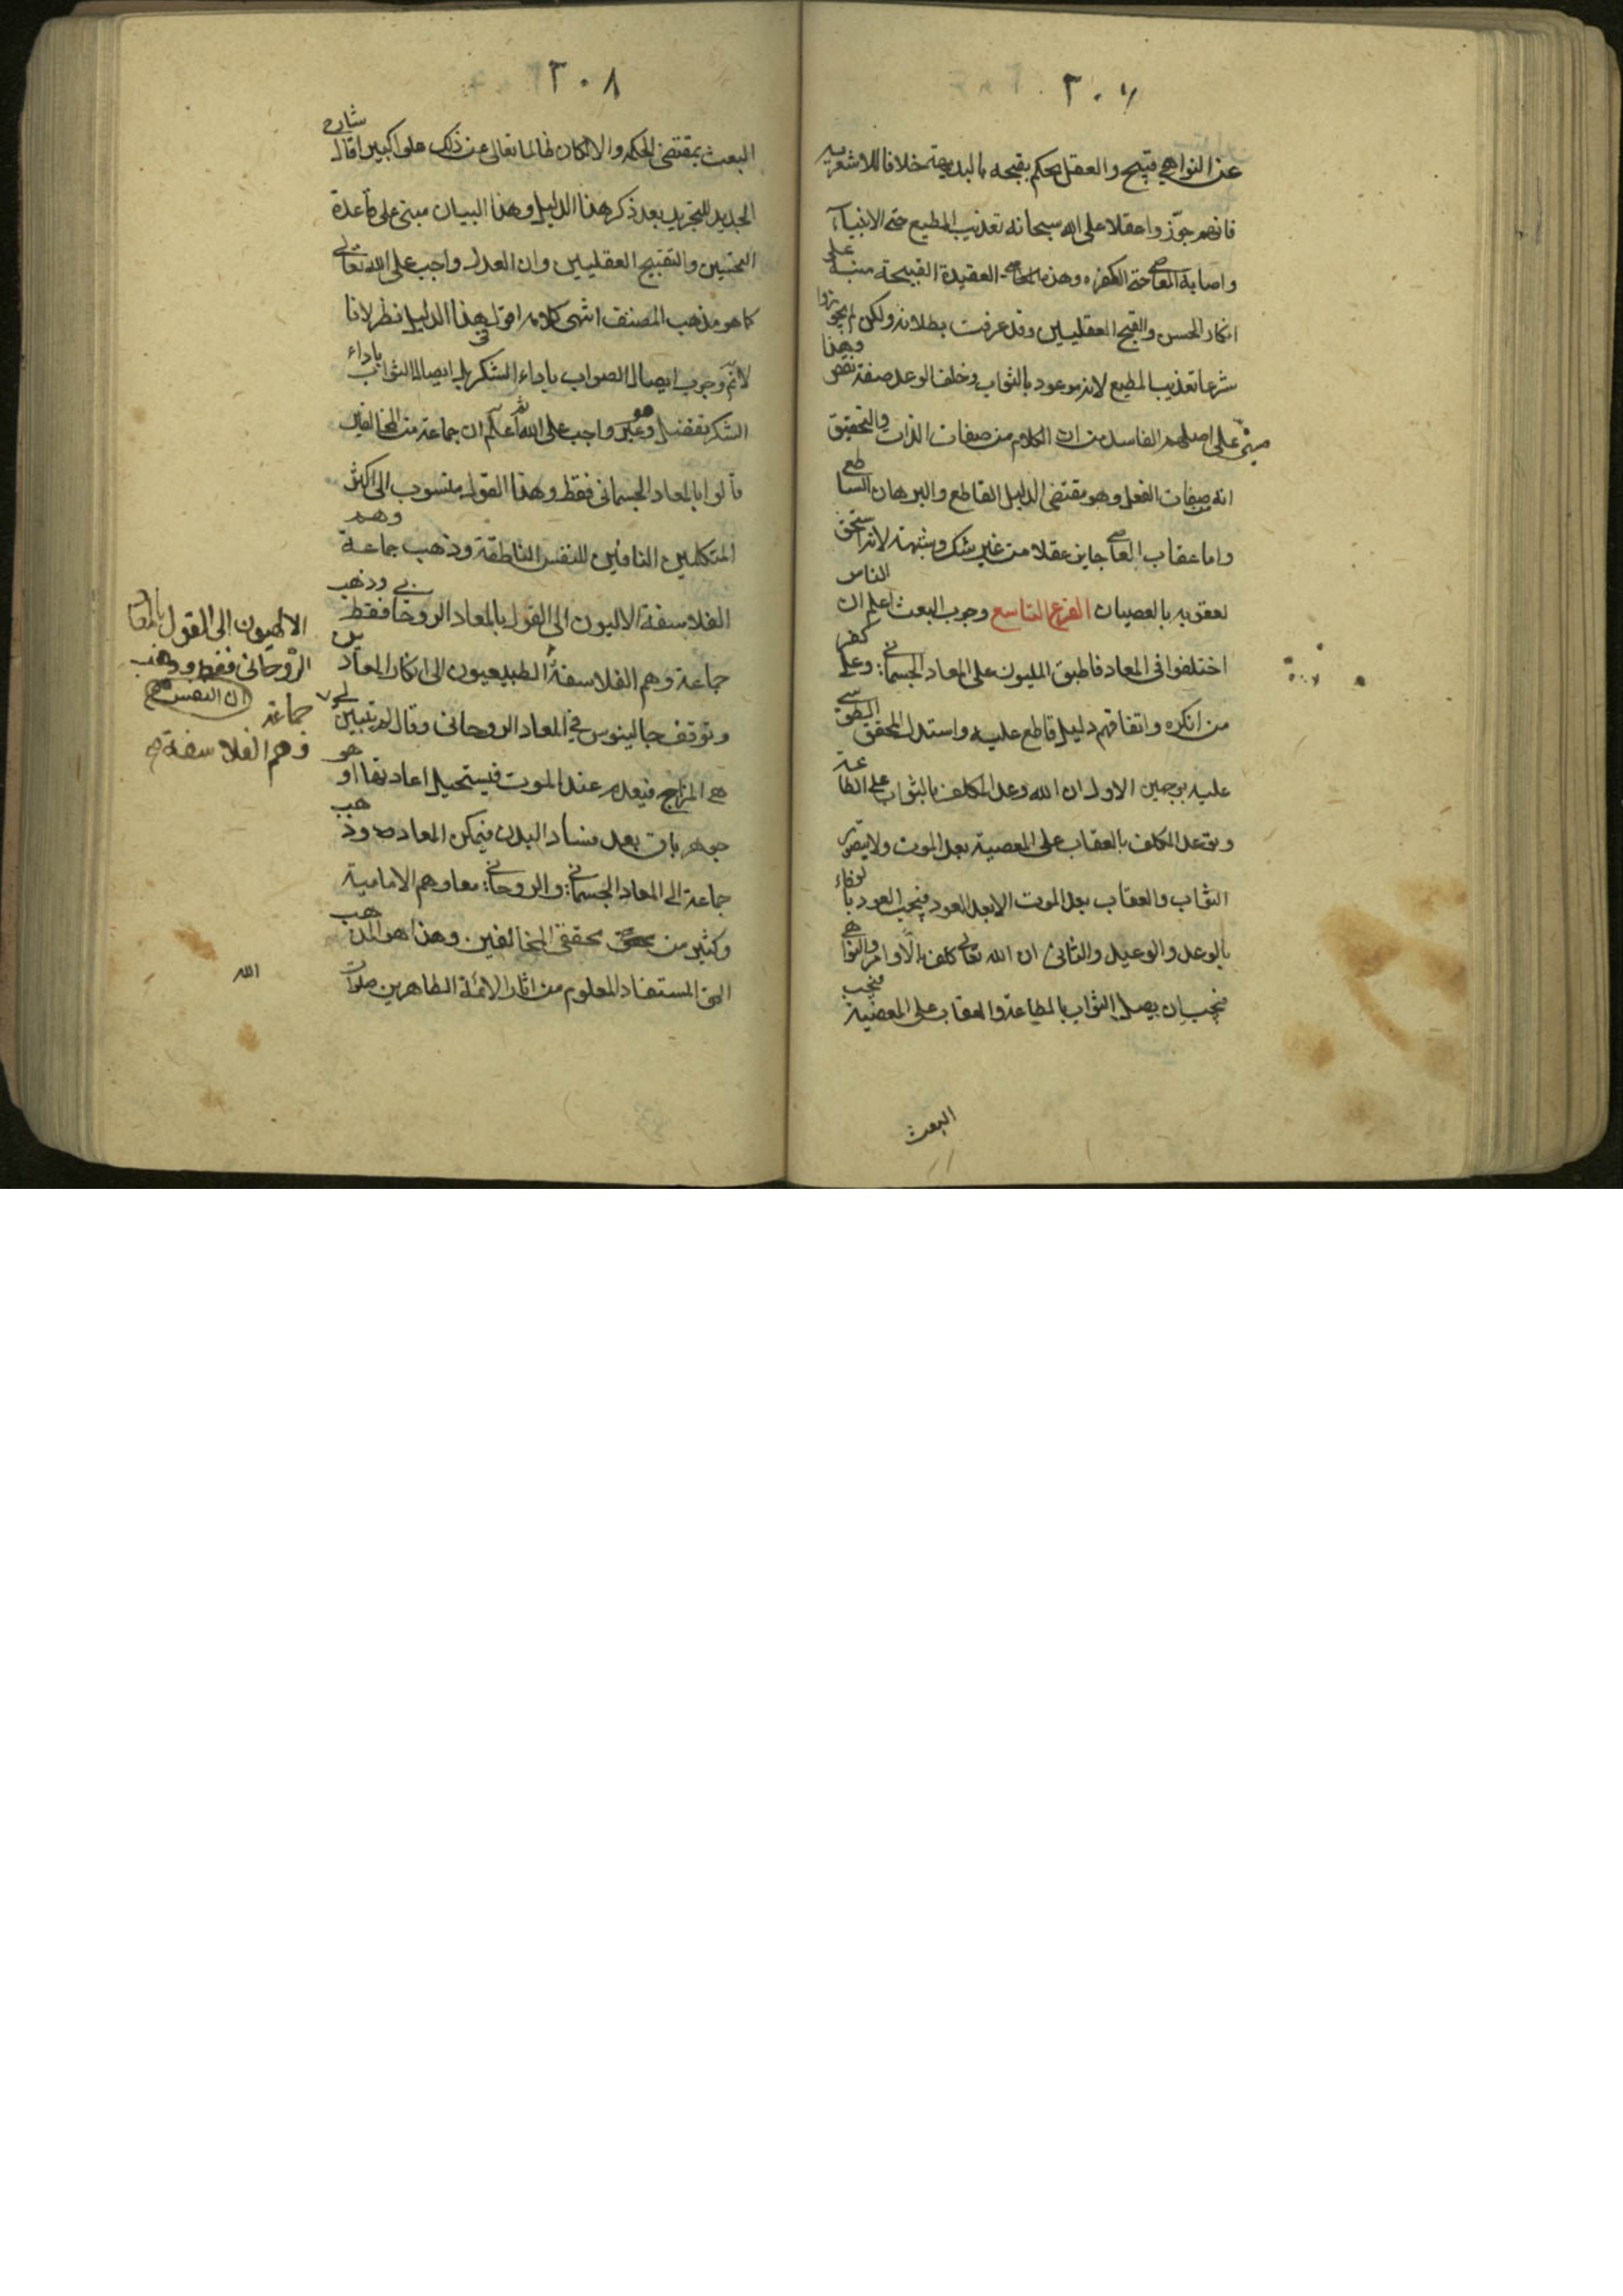 ٢٠٧
عن النواهي قبيح والعقل يحكم بقبحه بالبديهة خلافا للاشعرية
فانهم جوّزوا عقلا على الله سبحانه تعذيب المطيع حتى الانبياء
واصابة المعاصي حتى الكفره وهذه العقيدة القبيحة مبنية على
انكار الحسن والقبح العقليين وقد عرفت بطلانه ولكن لم يجوزوا
شرعا تعذيب المطيع لانه موعود بالثواب وخلف الوعد صفة نقص وهذا
مبنى على اصلهم الفاسد من ان الكلام من صفات الذات والتحقيق
انه من صفات الفعل وهو مقتضى الدليل القاطع والبرهان الساطع
واما عقاب العاصي جايز عقلا من غير شك وشبهة لانه استحق
لعقوبه بالعصيان الفرع التاسع وجوب البعث اعلم ان الناس
اختلفوا فى المعاد فاطبق المليون على المعاد الجسماني وعلى كفر
من انكره واتفاقهم دليل قاطع عليه واستدل المحقق الطوسي
عليه بوجهين الاول ان الله وعد المكلف بالثواب على الطاعة
وتوعد المكلف بالعقاب على المعصية بعد الموت ولا يتصور
الثواب والعقاب بعد الموت الا بعد العود فيجب العود بالوفاء
بالوعد والوعيد والثانى ان الله تعالى كلف بالاوامر والنواهي
فيجب ان يصل الثواب بالطاعة والعقاب على المعصية فيجب
البعث
٢٠٨
البعث بمقتضى الحكمه والا لكان ظالما تعالى عن ذلك علوا كبيرا قال شارح
الجديد للتجريد بعد ذكر هذا الدليل وهذا البيان مبنى على قاعدة
التحسين والتقبيح العقليين وان العدل واجب على الله تعالى
كما هو مذهب المصنف انتهى كلامه اقول في هذا الدليل نظر لانا
لانم وجوب ايصال الصواب باداء الشكر بل ايصال الثواب باداء
الشكر تفضل وهو غير واجب على الله ثم اعلم ان جماعة من المخالفين
قالوا بالمعاد الجسمانى فقط وهذا القول منسوب الى اكثر
المتكلمين النافين للنفس الناطقة وذهب جماعة وهم
الفلاسفة الالهيون الى القول بالمعاد الروحاني فقط وذهب
جماعة وهم الفلاسفة الطبيعيون الى انكار المعاد
وتوقف جالينوس في المعاد الروحانى وقال لم يتبين لي
هى المزاج فيعدم عند الموت فيستحيل اعادتها او هو
جوهر باق بعد فساد البدن فيمكن المعاد وذهب
جماعة الى المعاد الجسماني والروحاني معا وهم الامامية
وكثير من محققى المخالفين وهذا هو المذهب
الحق المستفاد المعلوم من اثار الائمة الطاهرين صلوات
الله
الالهيون الى القول بالمعاد
الروحانى فقط وذهب
جماعة
ان النفس
وهم الفلاسفة